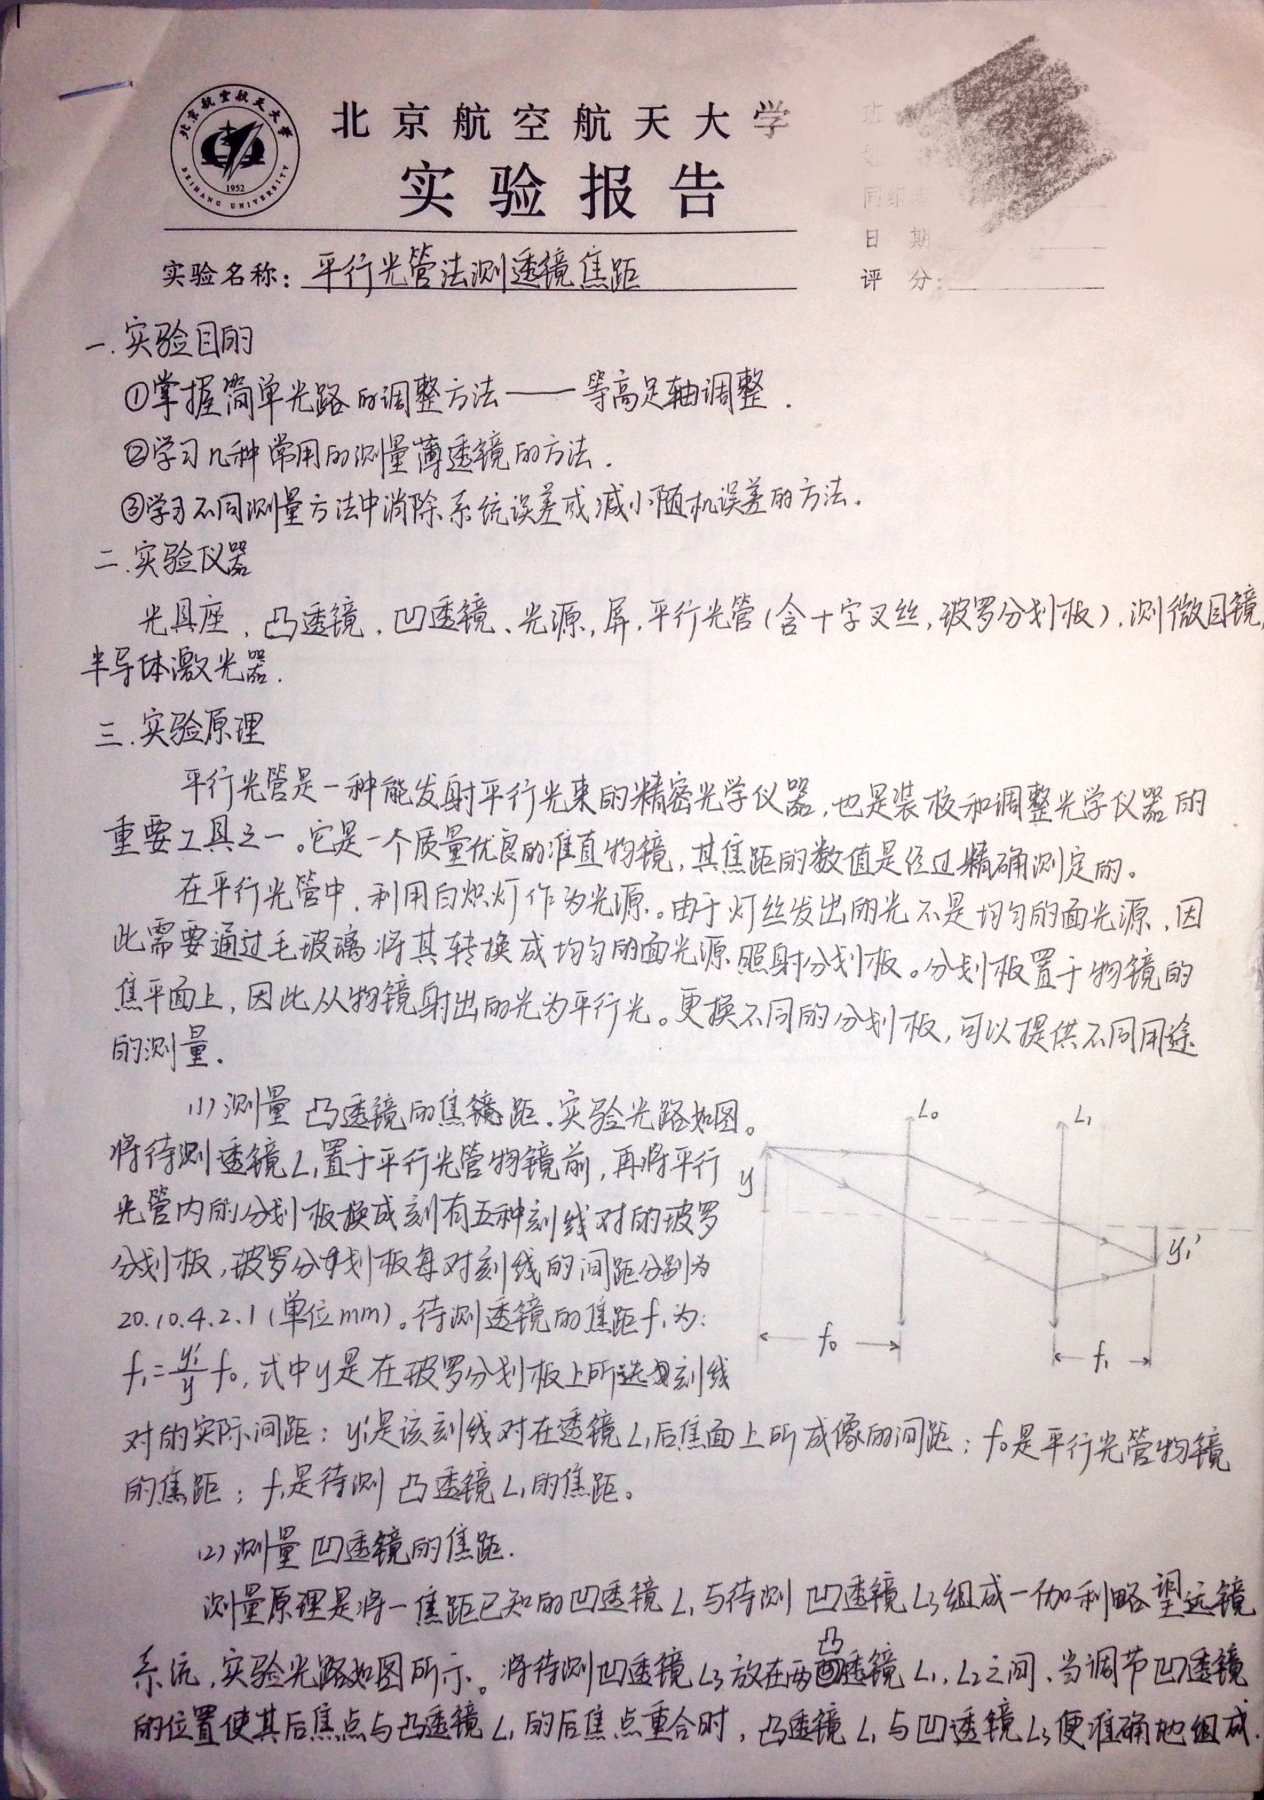 北京航空航天大学
BEIHANG UNIVERSITY
1952
北京航空航天大学
实验报告
同组
日 期
评 分:
实验名称: 平行光管法测透镜焦距
一.实验目的
①掌握简单光路的调整方法——等高足轴调整.
②学习几种常用的测量薄透镜的方法.
③学习不同测量方法中消除系统误差或减小随机误差的方法.
二.实验仪器
光具座、凸透镜、凹透镜、光源,屏.平行光管(含十字叉丝,玻罗分划板).测微目镜,
半导体激光器.
三.实验原理
平行光管是一种能发射平行光束的精密光学仪器,也是装校和调整光学仪器的
重要工具之一。它是一个质量优良的准直物镜,其焦距的数值是经过精确测定的。
在平行光管中,利用白炽灯作为光源。由于灯丝发出的光不是均匀的面光源,因
此需要通过毛玻璃将其转换成均匀的面光源照射分划板。分划板置于物镜的
焦平面上,因此从物镜射出的光为平行光。更换不同的分划板,可以提供不同用途
的测量.
(1)测量凸透镜的焦距.实验光路如图。
将待测透镜L₁置于平行光管物镜前,再将平行
光管内的分划板换成刻有五种刻线对的玻罗
分划板,玻罗分划板每对刻线的间距分别为
20.10.4.2.1(单位mm)。待测透镜的焦距f₁为:
f₁=y₁'/y f₀,式中y是在玻罗分划板上所选刻线
对的实际间距;y₁'是该刻线对在透镜L₁后焦面上所成像的间距;f₀是平行光管物镜
的焦距;f₁是待测凸透镜L₁的焦距。
L₀
L₁
y
y₁'
f₀
f₁
(2)测量凹透镜的焦距.
测量原理是将一焦距已知的凹透镜L₁与待测凹透镜L₃组成一伽利略望远镜
系统,实验光路如图所示。将待测凹透镜L₃放在两凸透镜L₁,L₂之间、当调节凹透镜
的位置使其后焦点与凸透镜L₁的后焦点重合时,凸透镜L₁与凹透镜L₃便准确地组成.